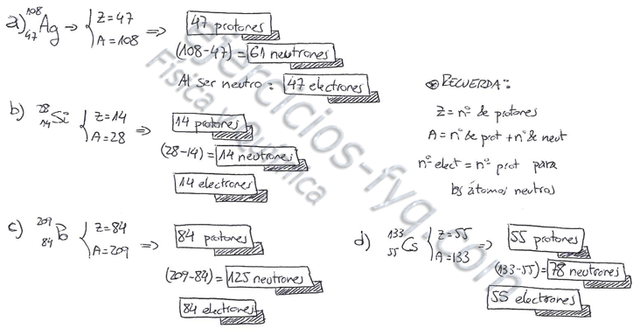 a) ¹⁰⁸₄₇Ag → { Z=47 A=108 ⇒ 47 protones
(108-47) = 61 neutrones
Al ser neutro: 47 electrones
b) ²⁸₁₄Si { Z=14 A=28 ⇒ 14 protones
(28-14) = 14 neutrones
14 electrones
RECUERDA:
Z = nº de protones
A = nº de prot + nº de neut
nº elect = nº prot para
los átomos neutros
c) ²⁰⁹₈₄Po { Z=84 A=209 ⇒ 84 protones
(209-84) = 125 neutrones
84 electrones
d) ¹³³₅₅Cs { Z=55 A=133 ⇒ 55 protones
(133-55) = 78 neutrones
55 electrones
ejercicios-fyq.com
Física y Química